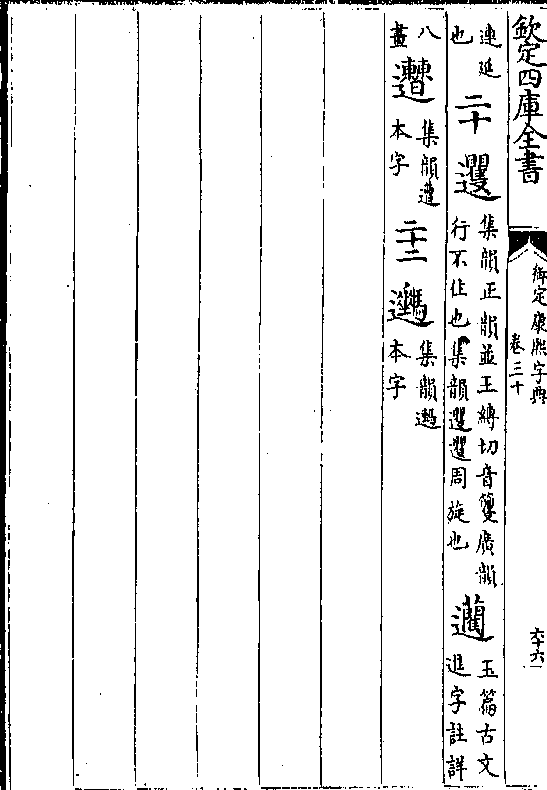 欽定四庫全書
御定康熙字典
卷三十
六十六
連延
也
二十
䢲
集韻正韻並王縛切音籰廣韻
行不住也集韻䢲䢲周旋也
玉篇古文
進字註詳
八
畫
集韻遭
本字
二十二
集韻
本字